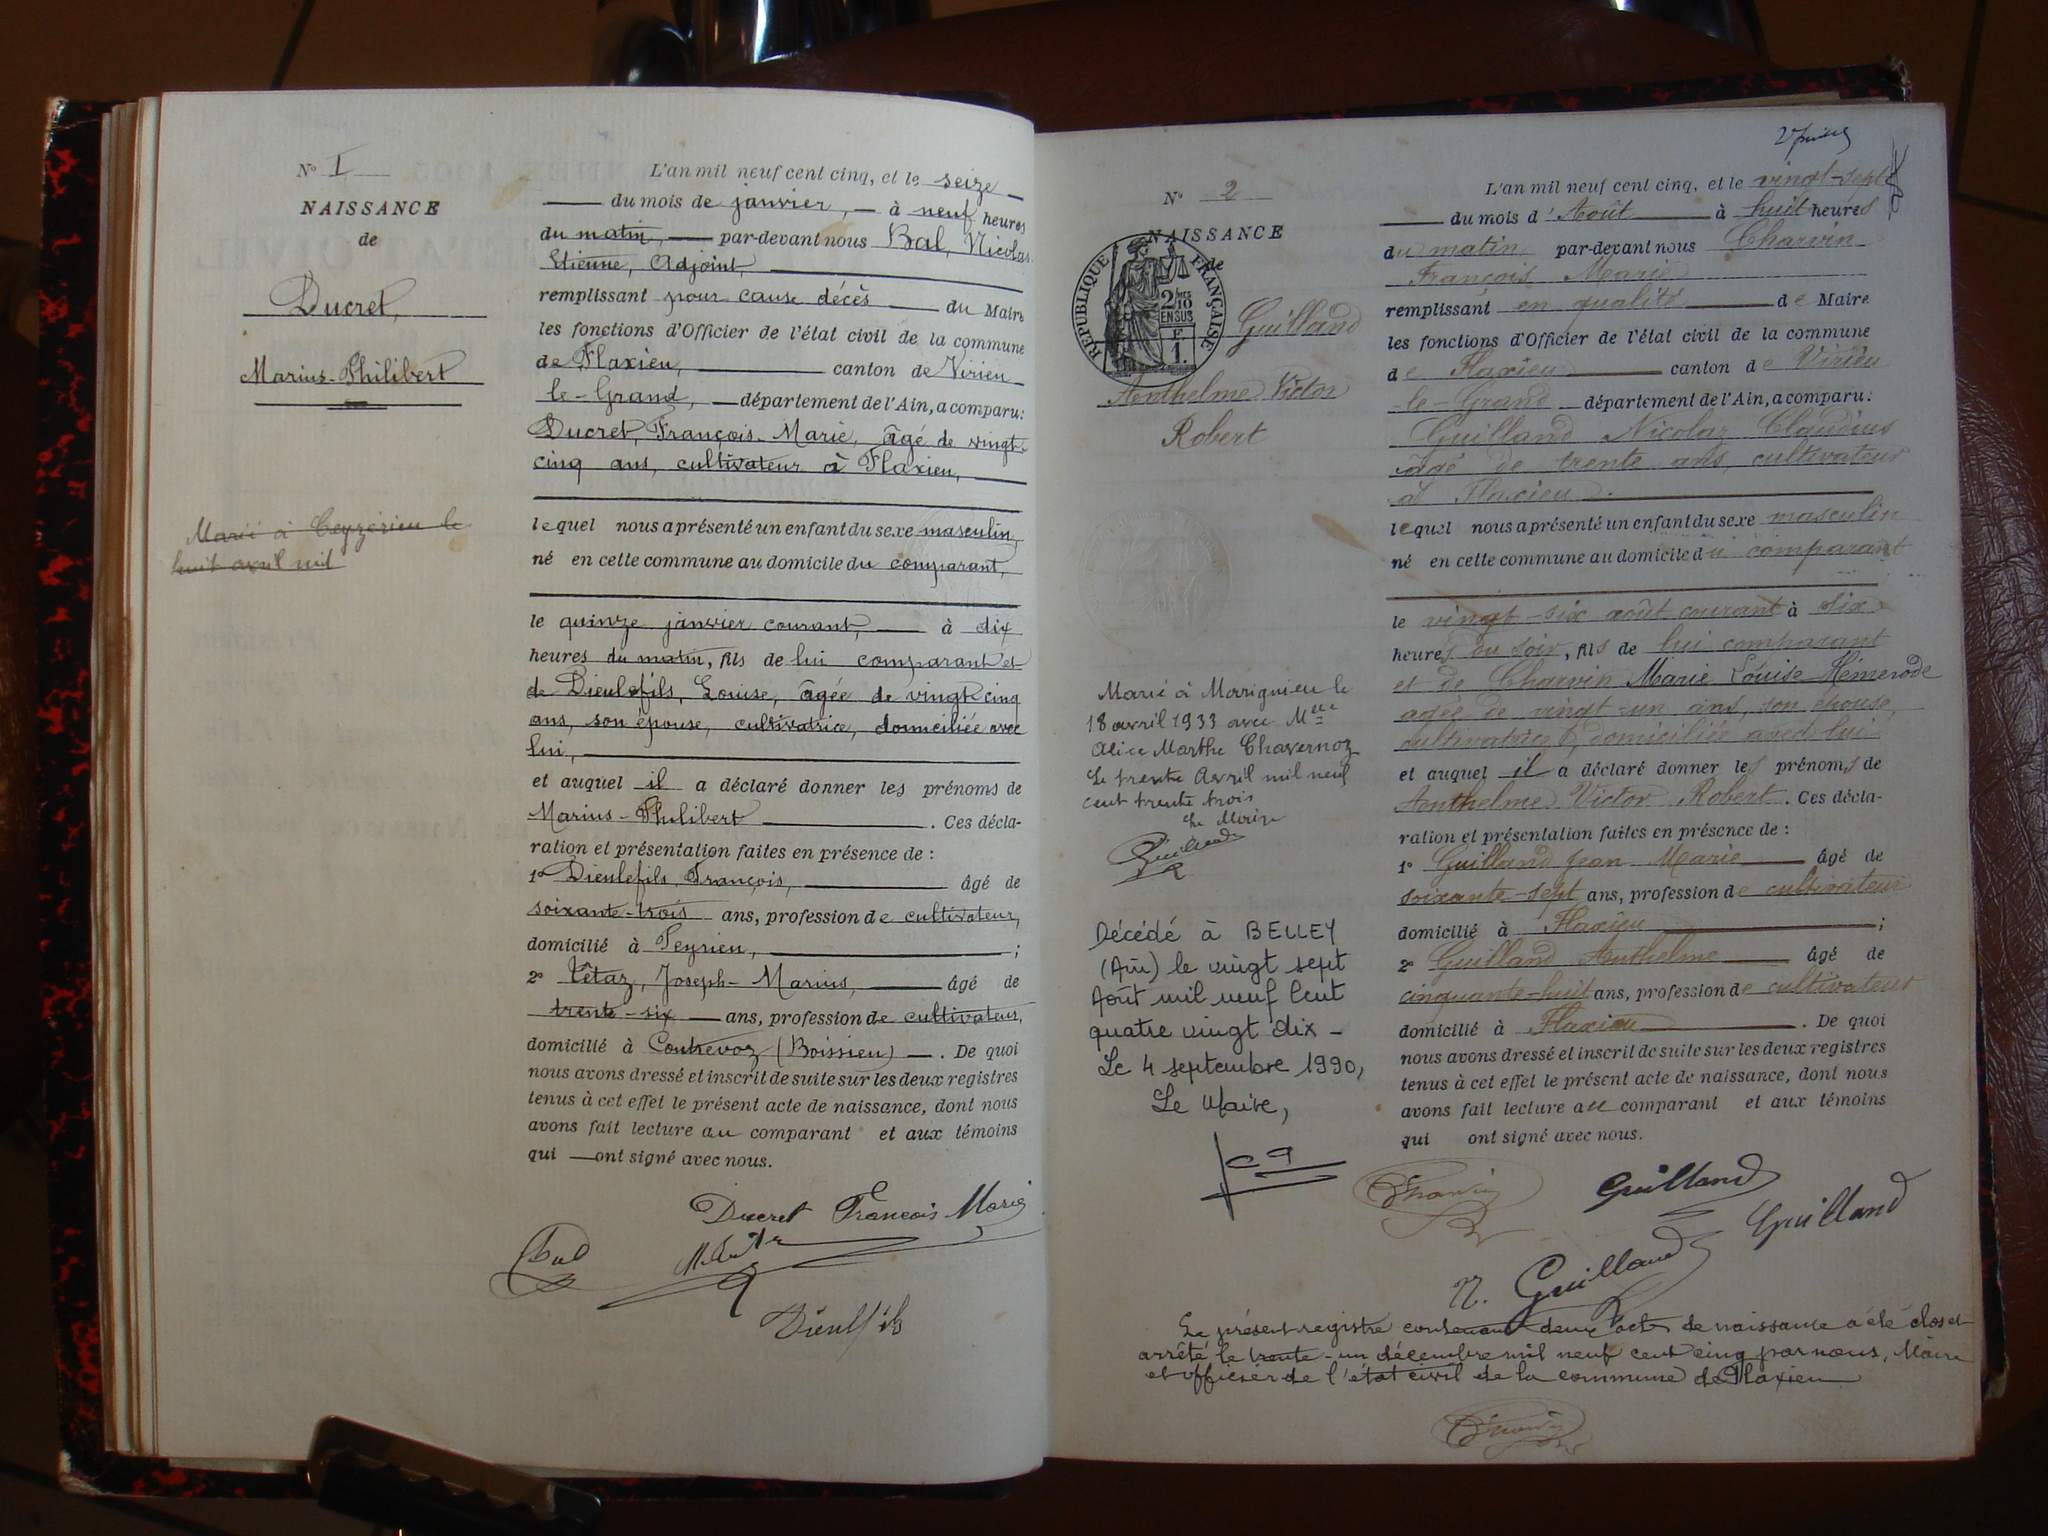 N° I
NAISSANCE
de
Ducret,
Marius-Philibert
Marié à Ceyzérieu le
huit avril mil
L'an mil neuf cent cinq, et le seize
du mois de janvier, à neuf heures
du matin, par-devant nous Bal, Nicolas
Etienne, Adjoint,
remplissant pour cause décès du Maire
les fonctions d'Officier de l'état civil de la commune
de Flaxieu, canton de Virieu
le-Grand, département de l'Ain, a comparu:
Ducret, François-Marie, âgé de vingt-
cinq ans, cultivateur à Flaxieu,
lequel nous a présenté un enfant du sexe masculin,
né en cette commune au domicile du comparant,
le quinze janvier courant, à dix
heures du matin, fils de lui comparant et
de Dieulefils, Louise, âgée de vingt cinq
ans, son épouse, cultivatrice, domiciliée avec
lui,
et auquel il a déclaré donner les prénoms de
Marius-Philibert. Ces décla-
ration et présentation faites en présence de :
1° Dieulefils, François, âgé de
soixante-trois ans, profession de cultivateur,
domicilié à Peyrieu, ;
2° Têtaz, Joseph-Marius, âgé de
trente-six ans, profession de cultivateur,
domicilié à Contrevoz (Boissieu). De quoi
nous avons dressé et inscrit de suite sur les deux registres
tenus à cet effet le présent acte de naissance, dont nous
avons fait lecture au comparant et aux témoins
qui ont signé avec nous.
Ducret François Marie
Bal
Dieulefils
N° 2
NAISSANCE
de
RÉPUBLIQUE FRANÇAISE
2/10 EN SUS
F
1.
Guilland
Anthelme Victor
Robert
Marié à Marignieu le
18 avril 1933 avec Mlle
Alice Marthe Chavernoz
Le trente Avril mil neuf
cent trente trois
Le Maire
Guilland
Décédé à BELLEY
(Ain) le vingt sept
Août mil neuf cent
quatre vingt dix -
Le 4 septembre 1990,
Le Maire,
L'an mil neuf cent cinq, et le vingt-sept
du mois d'Août à huit heures
du matin par-devant nous Charvin
François Marie
remplissant en qualité de Maire
les fonctions d'Officier de l'état civil de la commune
de Flaxieu canton de Virieu
-le-Grand département de l'Ain, a comparu:
Guilland Nicolas Claudius
âgé de trente ans, cultivateur
à Flaxieu.
lequel nous a présenté un enfant du sexe masculin
né en cette commune au domicile du comparant
le vingt-six août courant à six
heures du soir, fils de lui comparant
et de Charvin Marie Louise Hémerode
agée de vingt-un ans, son épouse,
cultivatrice, domiciliée avec lui
et auquel il a déclaré donner les prénoms de
Anthelme Victor Robert. Ces décla-
ration et présentation faites en présence de :
1° Guilland Jean Marie âgé de
soixante-sept ans, profession de cultivateur
domicilié à Flaxieu ;
2° Guilland Anthelme âgé de
cinquante-huit ans, profession de cultivateur
domicilié à Flaxieu. De quoi
nous avons dressé et inscrit de suite sur les deux registres
tenus à cet effet le présent acte de naissance, dont nous
avons fait lecture au comparant et aux témoins
qui ont signé avec nous.
Charvin Guilland
Guilland
N. Guilland
Le présent registre contenant deux actes de naissance a été clos et
arrêté le trente-un décembre mil neuf cent cinq par nous, Maire
et officier de l'état civil de la commune de Flaxieu
Charvin